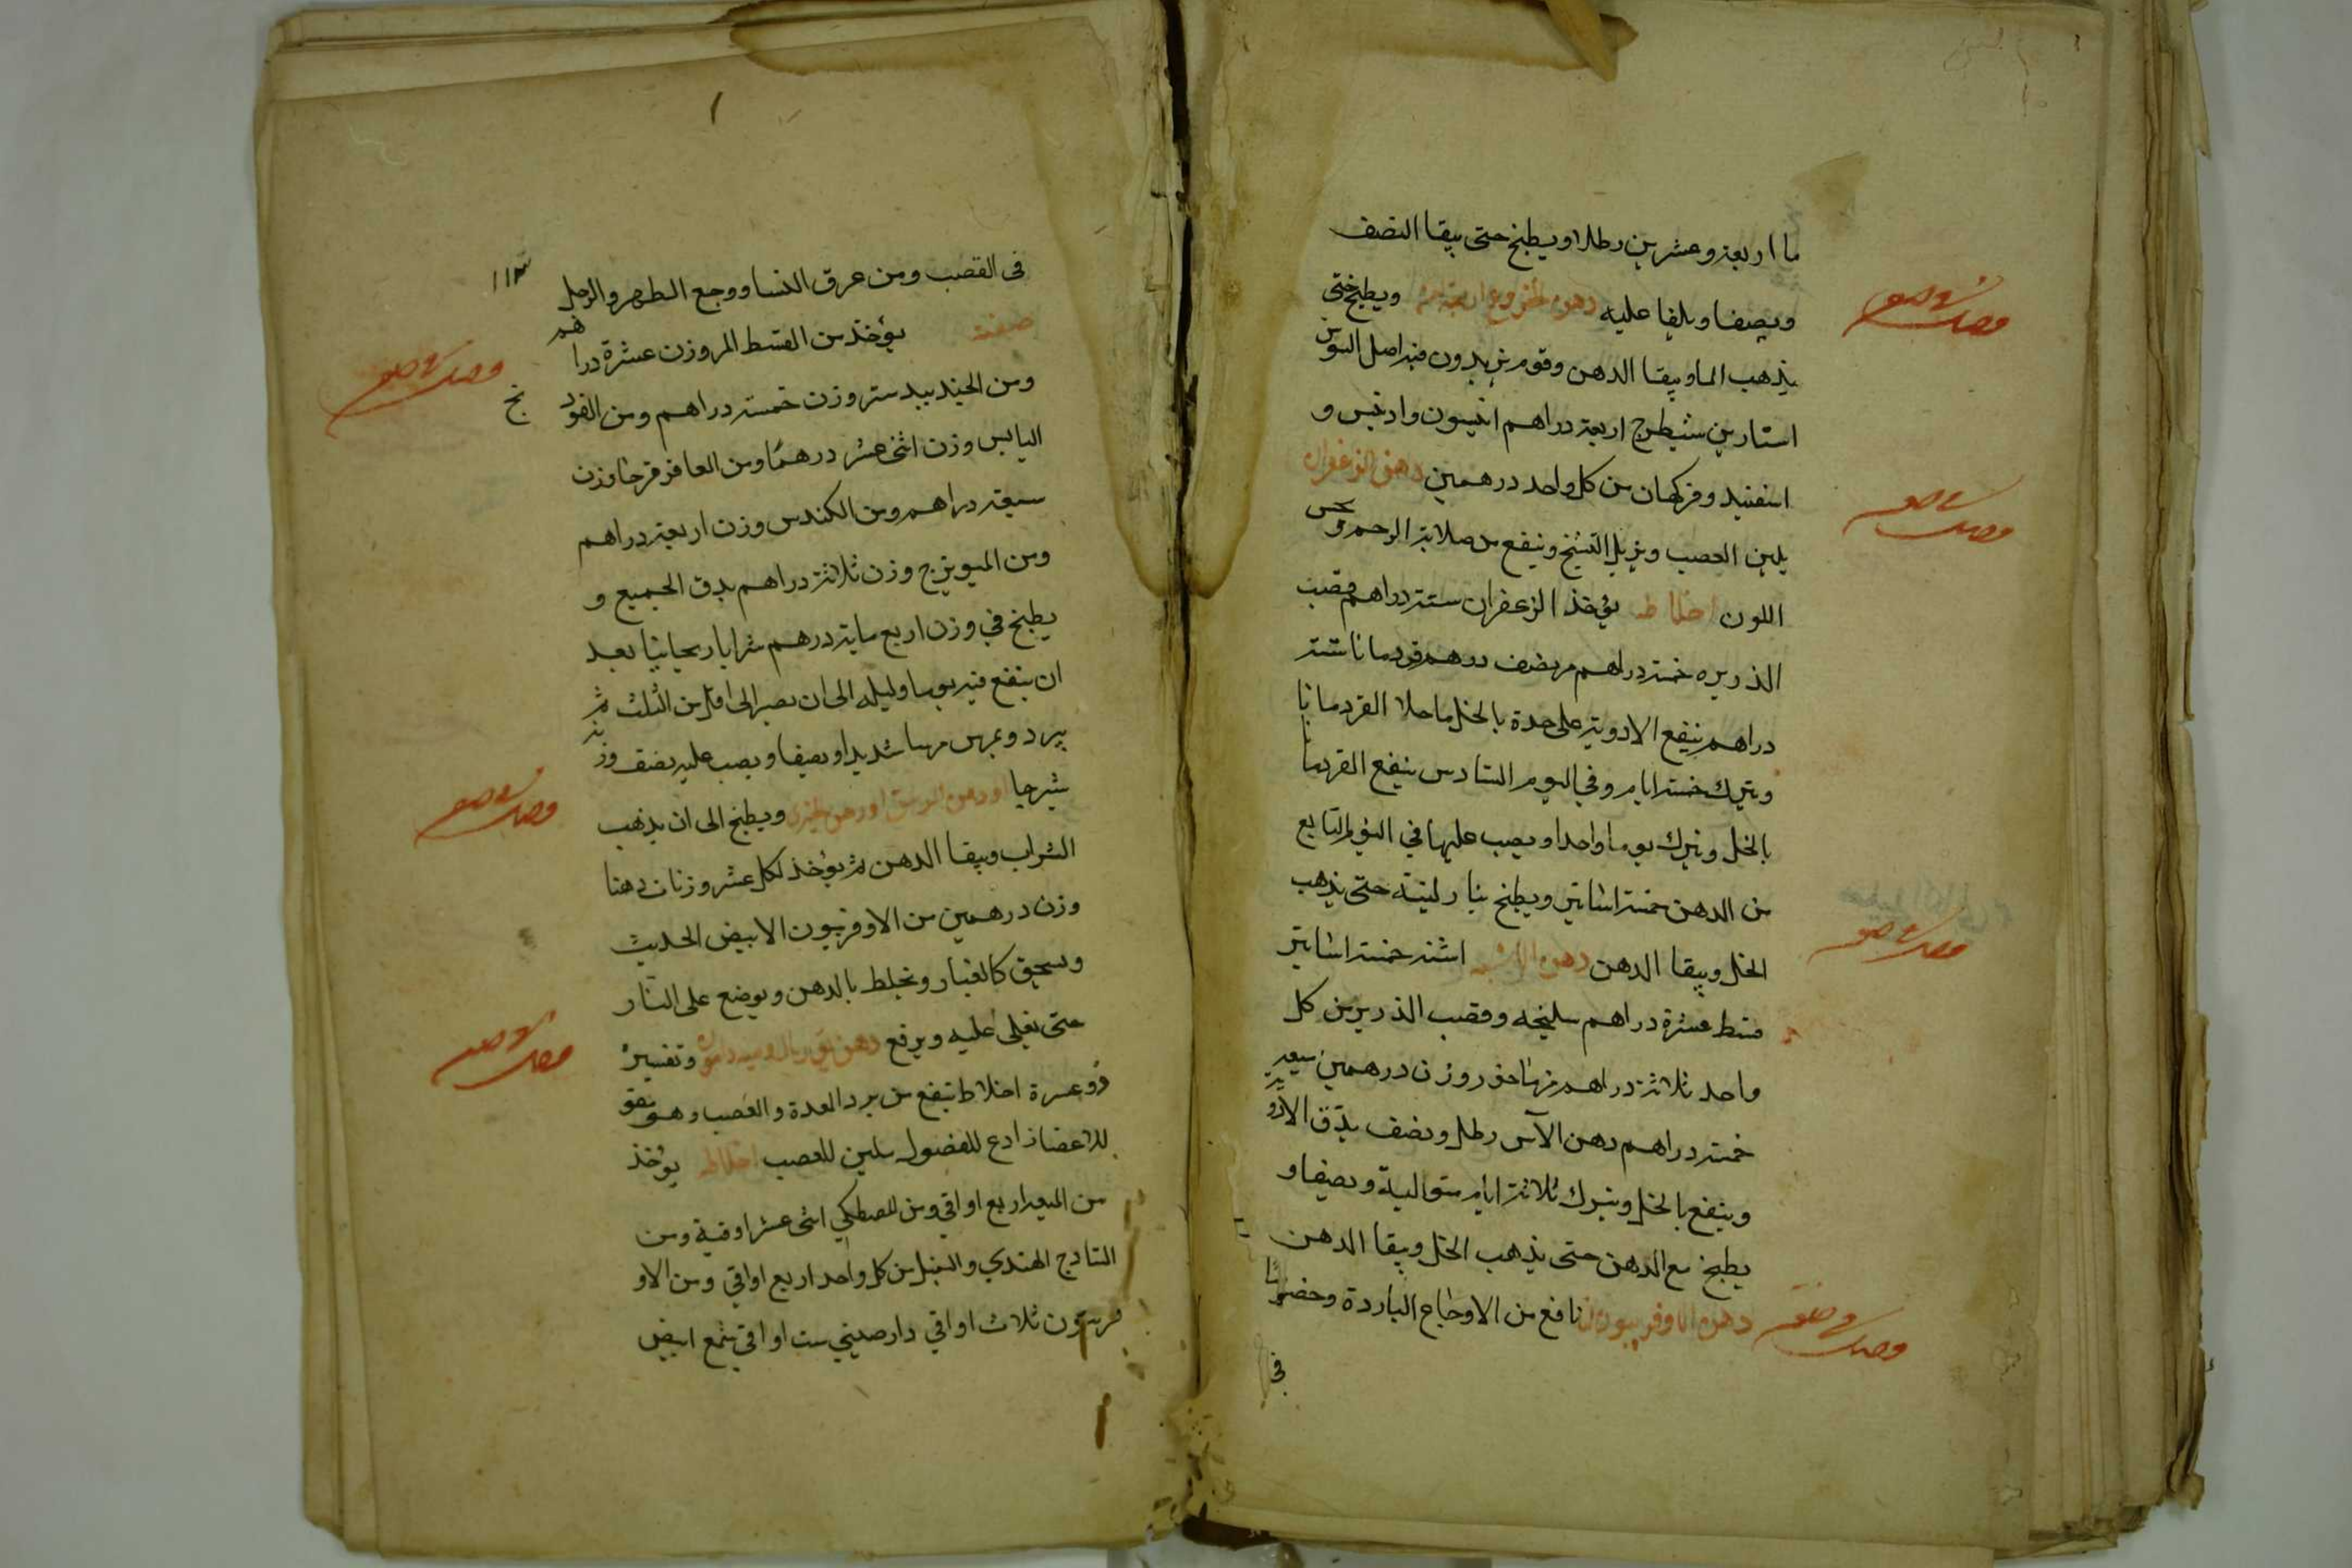 ما اربعة وعشرين رطلا ويطبخ حتى يبقا النصف
ويصفا ويلقا عليه دهن الخروع ويطبخ حتى
يذهب الما ويبقا الدهن وقوم يزيدون فيه اصل السوس
استارين شيطرج اربعة دراهم انيسون وادخس و
اسفنيد وفركهان من كل واحد درهمين دهن الزعفران
يلين العصب ويزيل التشنج وينفع من صلابة الرحم ويحسن
اللون اخلاطه يؤخذ الزعفران ستة دراهم قصب
الذريره خمسة دراهم مر نصف درهم قردمانا ستة
دراهم ينقع الادوية على حدة بالخل ما خلا القردمانا
ويترك خمسة ايام وفي اليوم السادس ينقع القردمانا
بالخل ويترك يوما واحدا ويصب عليها في اليوم السابع
من الدهن خمسة اساتير ويطبخ بنار لينة حتى يذهب
الخل ويبقا الدهن دهن الاشنه اشنه خمسة اساتير
قسط عشرة دراهم سليخه وقصب الذريره من كل
واحد ثلاثة دراهم وزن درهمين ميعه
خمسة دراهم دهن الآس رطل ونصف يدق الادوية
وينقع بالخل ويترك ثلاثة ايام متوالية ويصفا و
يطبخ مع الدهن حتى يذهب الخل ويبقا الدهن
دهن الاوفربيون نافع من الاوجاع الباردة وخصوصا
في
١١٣
في القصب ومن عرق النسا ووجع الظهر والرجل
صفته يؤخذ من القسط المر وزن عشرة دراهم
ومن الجندبيدستر وزن خمسة دراهم ومن الفودنج
اليابس وزن اثنى عشر درهمًا ومن العاقر قرحا وزن
سبعة دراهم ومن الكندس وزن اربعة دراهم
ومن الميويزج وزن ثلاثة دراهم يدق الجميع و
يطبخ في وزن اربع ماية درهم شرابا ريحانيا بعد
ان ينقع فيه يوما وليله الى ان يصير الى اقل من الثلث ثم
يبرد ويمرس مرسا شديدا ويصفا ويصب عليه نصف وزنه
شيرجا او دهن الزنبق او دهن الخيري ويطبخ الى ان يذهب
الشراب ويبقا الدهن ثم يؤخذ لكل عشر وزنات دهنا
وزن درهمين من الاوفربيون الابيض الحديث
ويسحق كالغبار ويخلط بالدهن ويوضع على النار
حتى يغلى غليه ويرفع دهن وتفسيره
ذو عشرة اخلاط تنفع من برد المعدة والعصب وهو مقو
للاعضا رادع للفضول ملين للعصب اخلاطه يؤخذ
من الميعه اربع اواقي ومن المصطكي اثنى عشر اوقية ومن
السادج الهندي والسنبل من كل واحد اربع اواقي ومن الاو
فربيون ثلاث اواقي دارصيني ست اواقي شمع ابيض